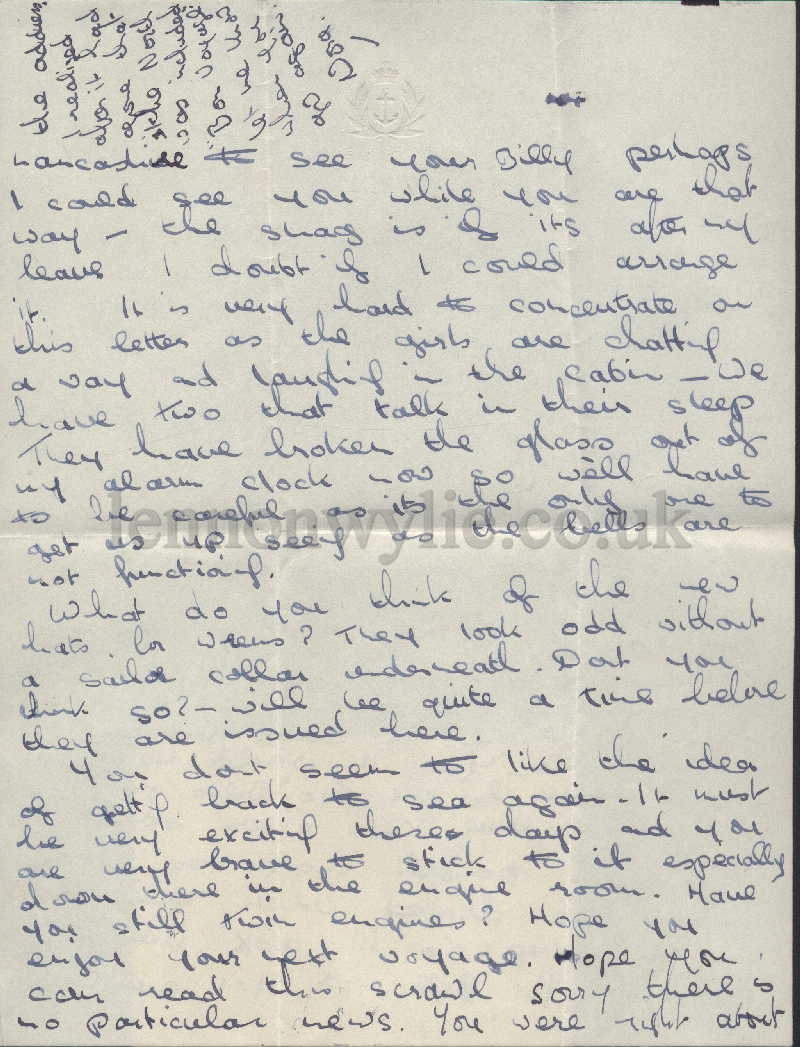 Lancashire to see your Billy perhaps
I could see you while you are that
way - the snag is if its after my
leave I doubt if I could arrange
it. It is very hard to concentrate on
this letter as the girls are chatting
away and laughing in the cabin - We
have two that talk in their sleep
They have broken the glass out of
my alarm clock now so we'll have
to be careful as its the only one to
get us up seeing as the bells are
not functiong.
What do you think of the new
hats for wrens? They look odd without
a sailor collar underneath. Dont you
think so? - will be quite a time before
they are issued here.
You dont seem to like the idea
of getting back to sea again - It must
be very exciting these days and you
are very brave to stick to it especially
down there in the engine room. Have
you still twin engines? Hope you
enjoy your next voyage. Hope you
can read this scrawl sorry there is
no particular news. You were right about
the address
I realized
after it had
gone that
the
was
lennonwylie.co.uk